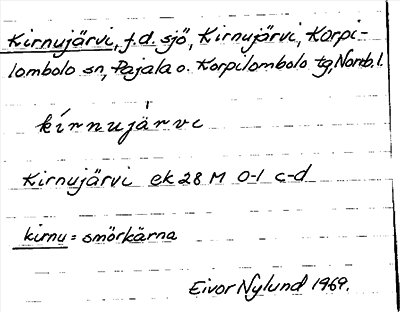 Kirnujärvi, f.d. sjö, Kirnujärvi, Korpi-
lombolo sn, Pajala o. Korpilombolo tg, Norrb. l.
kírnujärvi
Kirnujärvi ek 28 M 0-1 c-d
kirnu = smörkärna
Eivor Nylund 1969.